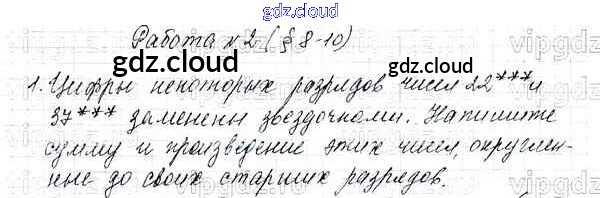 gdz.cloud
Работа №2 (§ 8-10)
gdz.cloud gdz.cloud
1. Цифры некоторых разрядов чисел 22*** и
37*** заменены звездочками. Напишите
сумму и произведение этих чисел, округлен-
ные до своих старших разрядов.